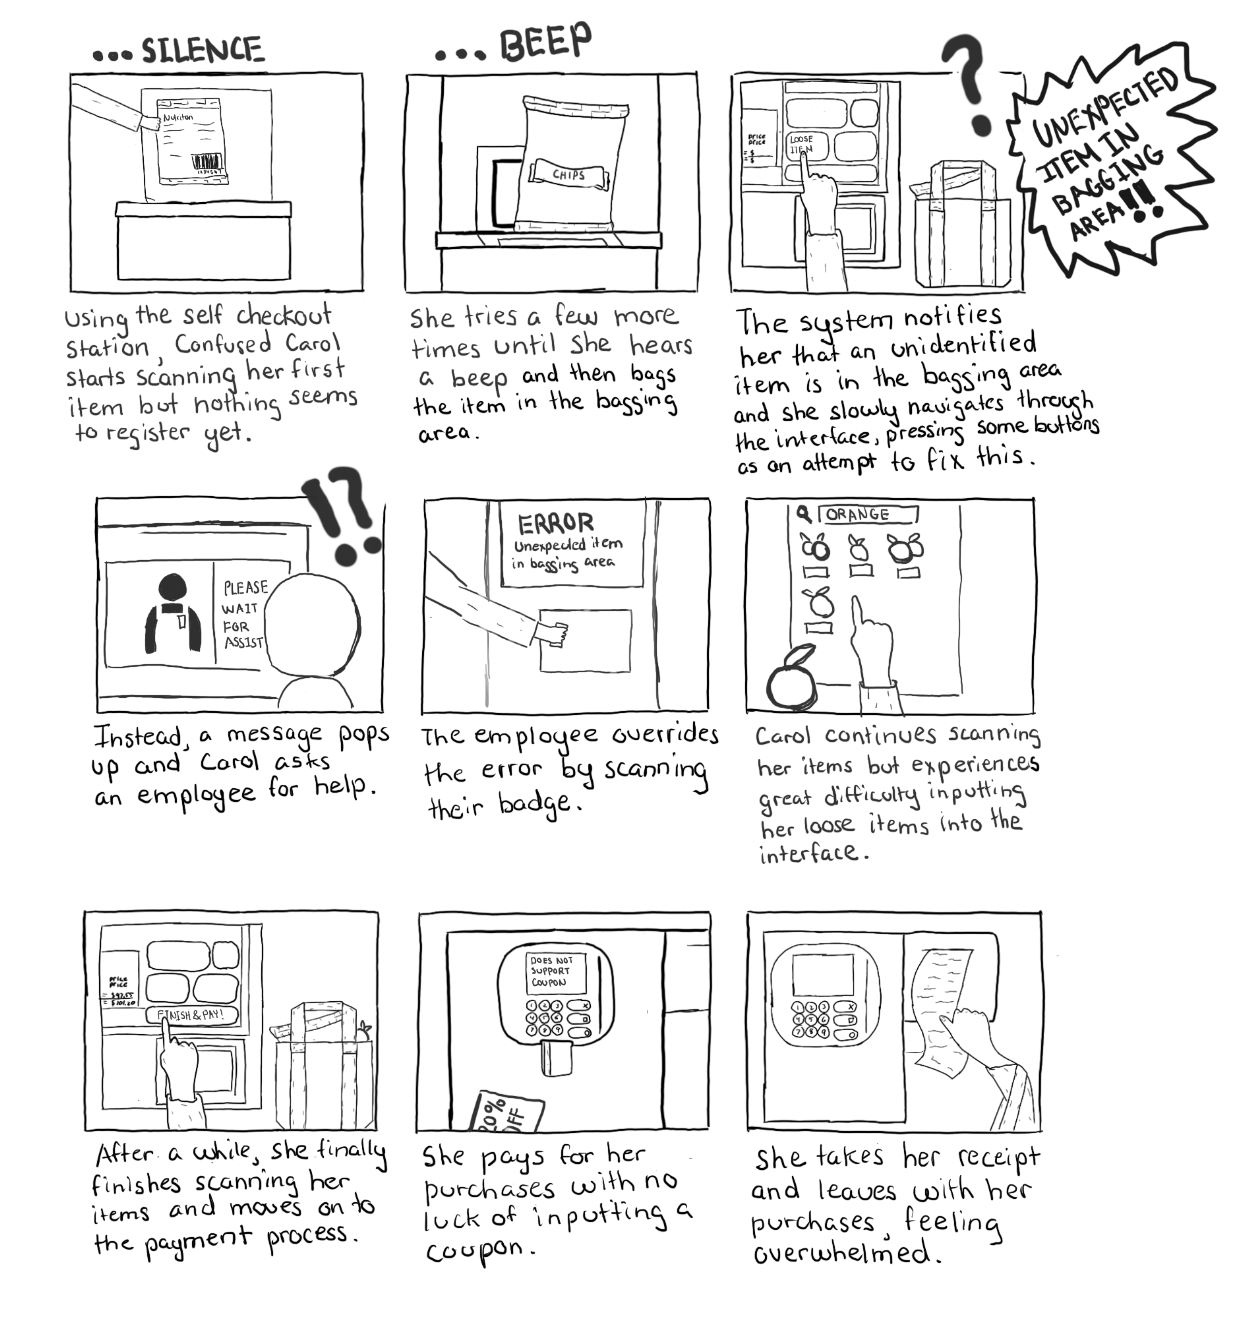 ...SILENCE
Nutrition
1234567
using the self checkout
station, Confused Carol
starts scanning her first
item but nothing seems
to register yet.
...BEEP
CHIPS
She tries a few more
times until she hears
a beep and then bags
the item in the bagging
area.
?
price
price
= $
= $
LOOSE
ITEM
UNEXPECTED
ITEM IN
BAGGING
AREA!!
The system notifies
her that an unidentified
item is in the bagging area
and she slowly navigates through
the interface, pressing some buttons
as an attempt to fix this.
!?
PLEASE
WAIT
FOR
ASSIST
Instead, a message pops
up and Carol asks
an employee for help.
ERROR
Unexpected item
in bagging area
The employee overrides
the error by scanning
their badge.
ORANGE
Carol continues scanning
her items but experiences
great difficulty inputting
her loose items into the
interface.
price
price
= $97.55
= $101.20
FINISH & PAY!
After a while, she finally
finishes scanning her
items and moves on to
the payment process.
DOES NOT
SUPPORT
COUPON
1 2 3 X
4 5 6
7 8 9 O
20%
OFF
She pays for her
purchases with no
luck of inputting a
coupon.
1 2 3 X
4 5 6
7 8 9 O
She takes her receipt
and leaves with her
purchases, feeling
overwhelmed.